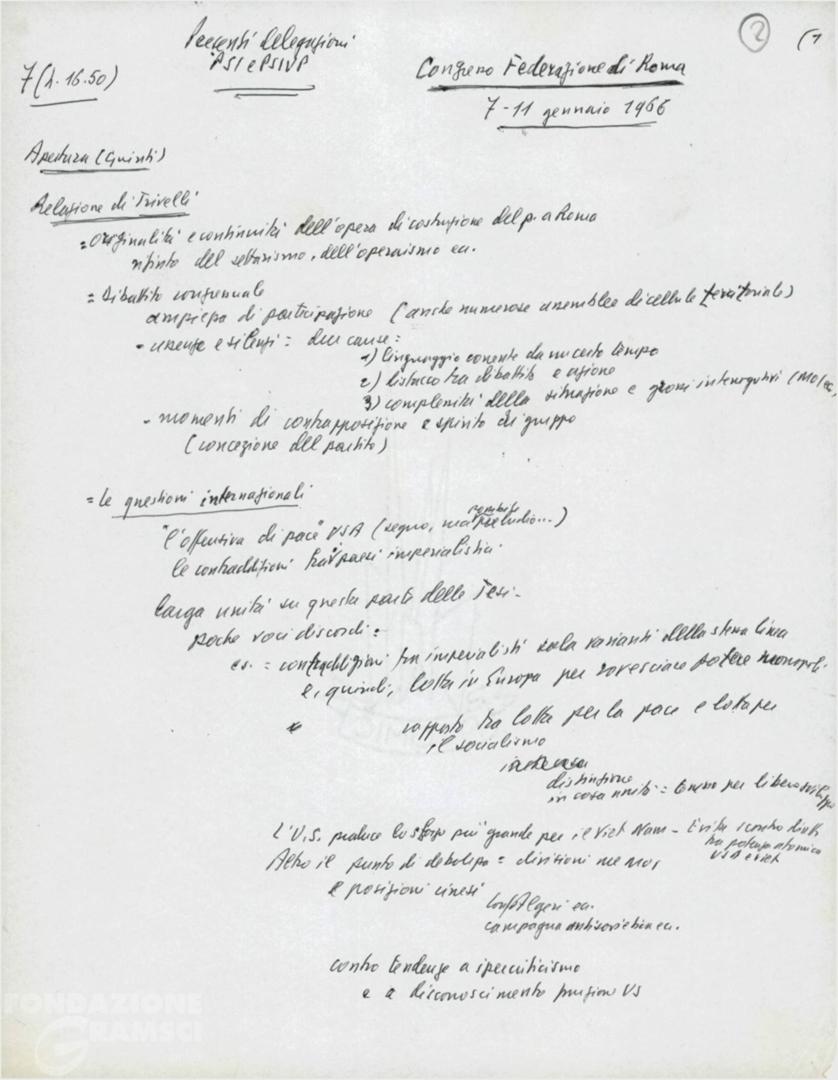 2 (1
Presenti delegazioni
PSI e PSIUP
7 (h. 16.50)
Congresso Federazione di Roma
7-11 gennaio 1966
Apertura (Quinti)
Relazione di Trivelli
= originalità e continuità dell'opera di costruzione del p. a Roma
rifiuto del settarismo, dell'operaismo ecc.
= Dibattito congressuale
ampiezza di partecipazione (anche numerose assemblee di cellule territoriale)
- assenze e silenzi = due cause:
1) linguaggio corrente da un certo tempo
2) distacco tra dibattito e azione
3) complessità della situazione e grossi interrogativi (MOI ec.
- momenti di contrapposizione e spirito di gruppo
(concezione del partito)
= le questioni internazionali
"l'offensiva di pace" USA (segno, ma preludio...)
le contraddizioni tra paesi imperialisti
larga unità su questa parte delle Tesi -
poche voci discordi:
es. = contraddizioni tra imperialisti sola varianti della stessa linea
e, quindi, lotta in Europa per rovesciare potere monopoli
rapporto tra lotta per la pace e lotta per
il socialismo
distinzione
in cosa unità = terreno per libero sviluppo
L'U.S. produce lo sforzo più grande per il Viet Nam - Evita scontro diretto
tra potenze atomiche
USA e Viet
Altro il punto di debolezza = divisioni nel MOI
e posizioni cinesi
Conf Algeri ec.
campagna antisovietica ec.
contro tendenze a ipercriticismo
e a disconoscimento funzione US
FONDAZIONE
GRAMSCI